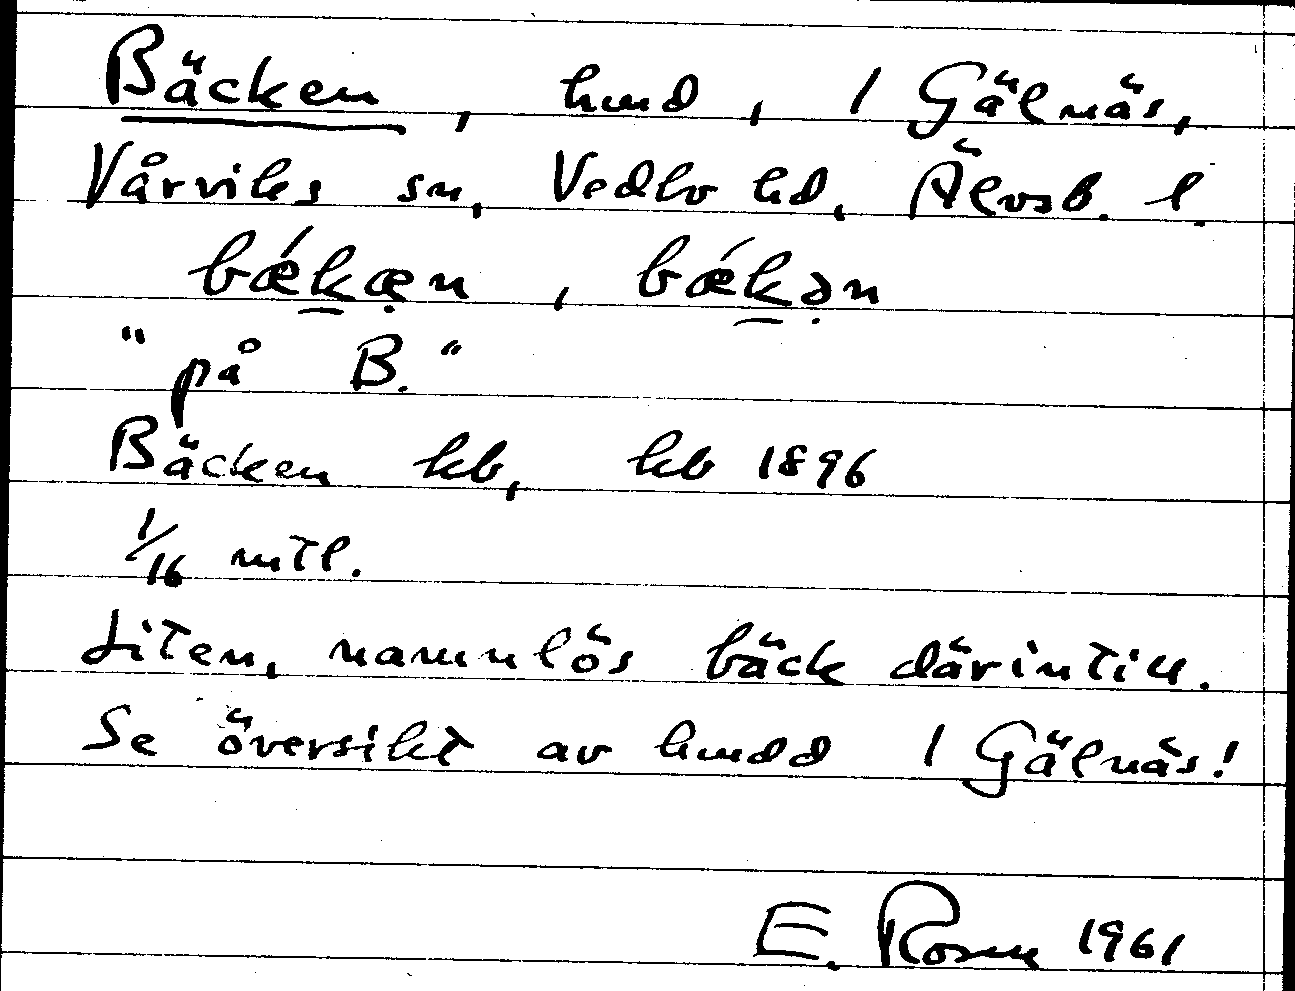 Bäcken, hmd, 1 Gälnäs,
Vårviks sn, Vedbo hd, Älvsb. l.
bǽk̯æ̣n, bǽk̯ə̣n
"på B."
Bäcken kb, kb 1896
1/16 mtl.
Liten, namnlös bäck därintill.
Se översikt av hmdd 1 Gälnäs!
E. Rosen 1961